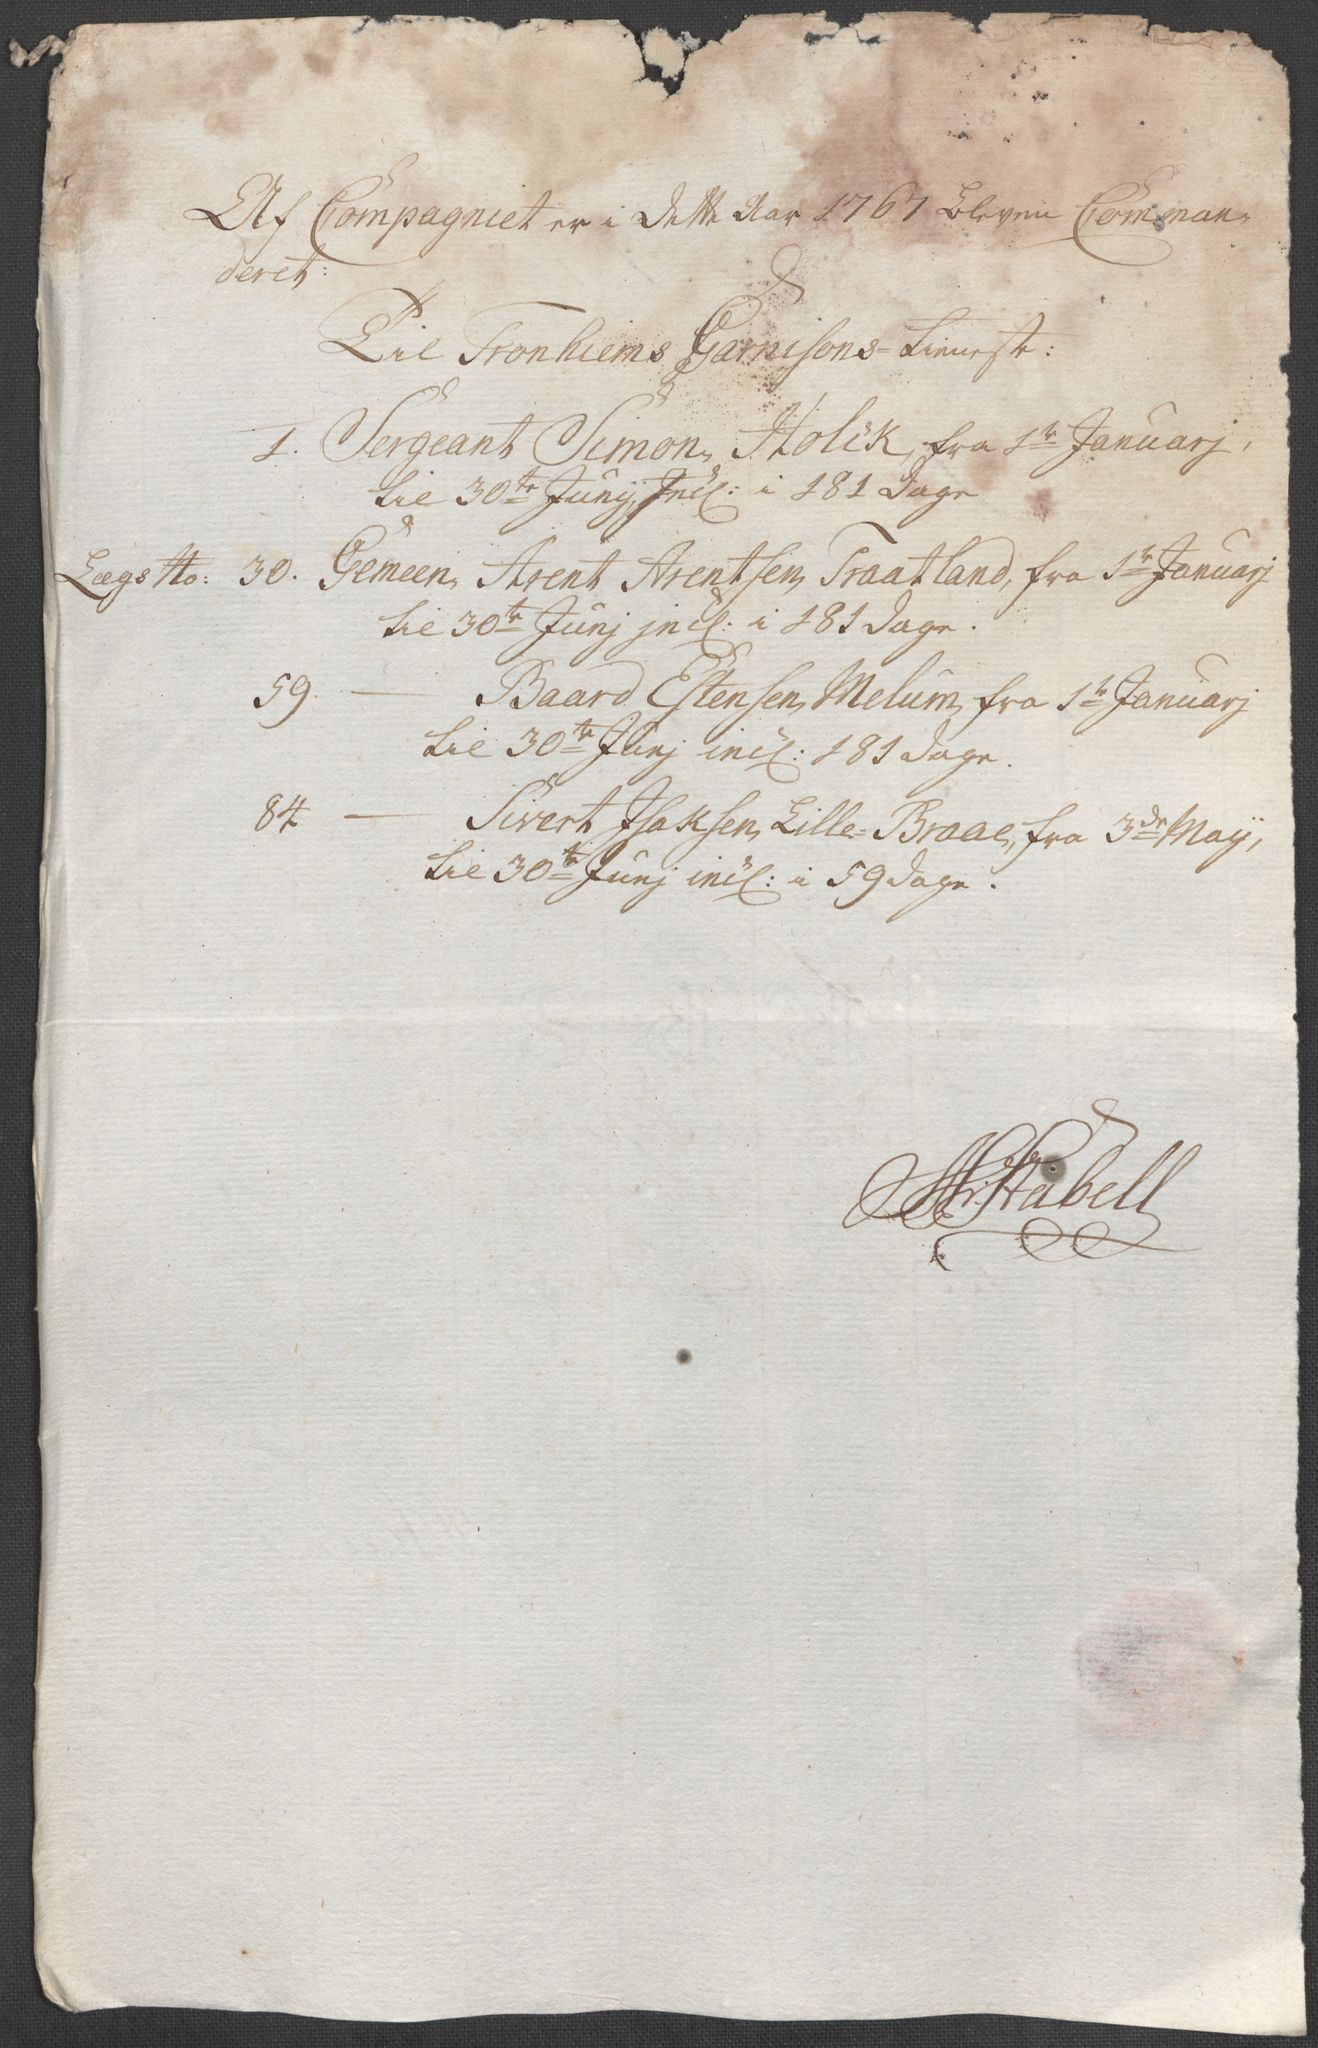 Af Compagniet er i dette Aar 1767 bleven Comman-
deret:
Til Tronhiems Garnisons-tieneste:
1. Sergeant Simon Holck, fra 1te Januarj,
til 30te Junij, Incl: i 181 Dage
Lægs No: 30. Gemeen, Arent Arentsen, Traatland, fra 1te Januarj
til 30te Junj incl: i 181 Dage.
59. — Baard Estensen, Melum, fra 1te Januarj
til 30te Junj incl: 181 Dage.
84 — Sivert Isaksen, Lille-Braae, fra 3de May,
til 30te Junj incl: i 59 Dage.
Stabell